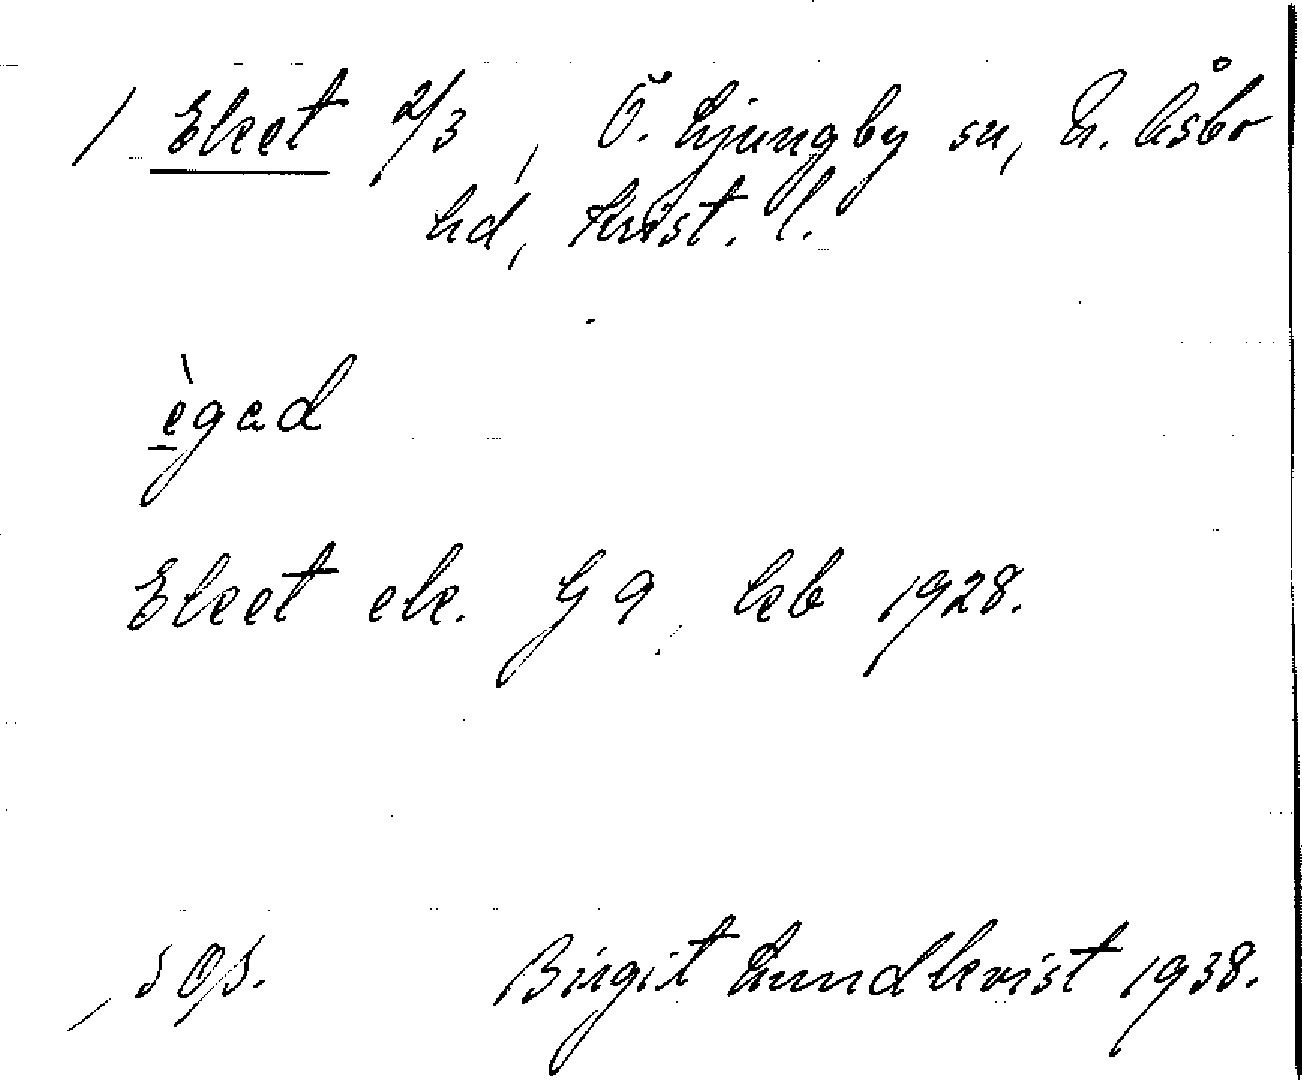 1 Ekeet 2/3, Ö. Ljungby sn, N. Åsbo
hd, Krist. l.
ègəd
Ekeet ek. G 9 keb 1928.
Birgit Lundkvist 1938.